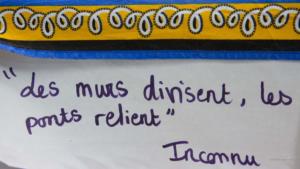 "des murs divisent, les
ponts relient"
Inconnu